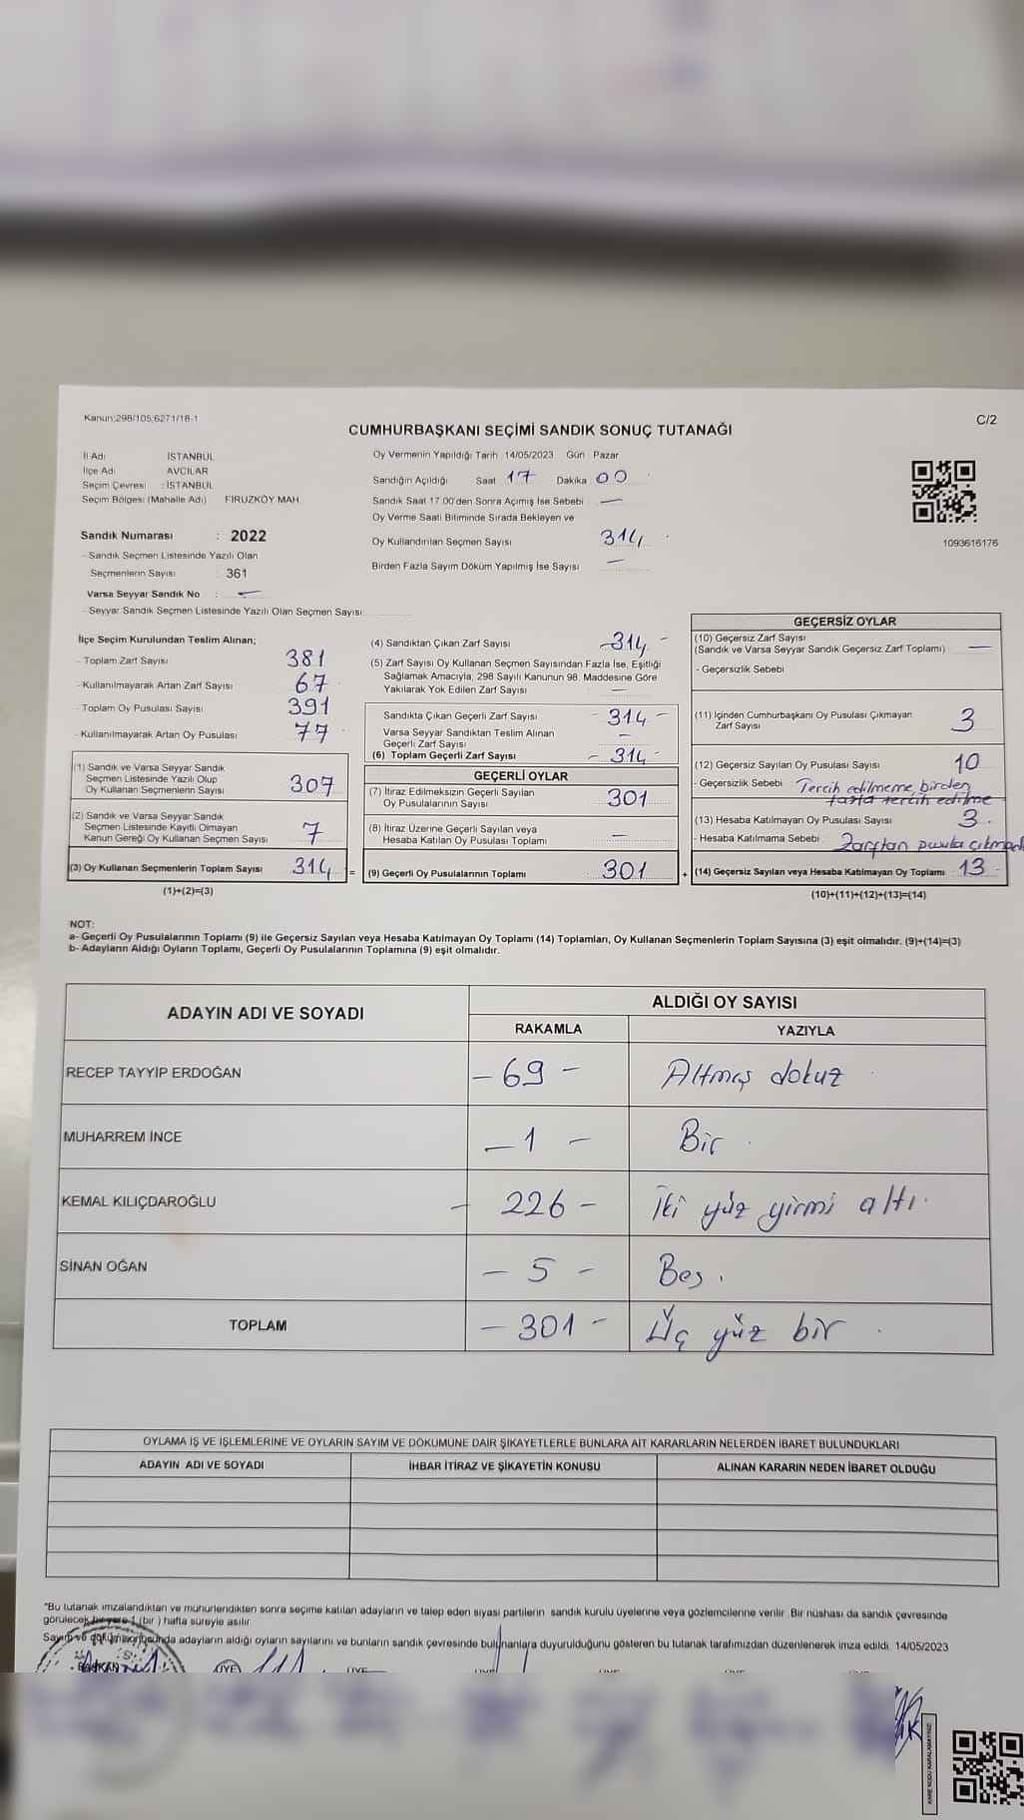 Kanun:298/105;6271/18-1
C/2
CUMHURBAŞKANI SEÇİMİ SANDIK SONUÇ TUTANAĞI
İl Adı : İSTANBUL
İlçe Adı : AVCILAR
Seçim Çevresi : İSTANBUL
Seçim Bölgesi (Mahalle Adı) FİRUZKÖY MAH.
Oy Vermenin Yapıldığı Tarih 14/05/2023 Gün Pazar
Sandığın Açıldığı Saat 17 Dakika 00
Sandık Saat 17.00'den Sonra Açılmış İse Sebebi —
Oy Verme Saati Bitiminde Sırada Bekleyen ve
Oy Kullandırılan Seçmen Sayısı 314
Birden Fazla Sayım Döküm Yapılmış İse Sayısı —
1093616176
Sandık Numarası : 2022
- Sandık Seçmen Listesinde Yazılı Olan
Seçmenlerin Sayısı : 361
Varsa Seyyar Sandık No : —
- Seyyar Sandık Seçmen Listesinde Yazılı Olan Seçmen Sayısı
İlçe Seçim Kurulundan Teslim Alınan;
- Toplam Zarf Sayısı 381
- Kullanılmayarak Artan Zarf Sayısı 67
- Toplam Oy Pusulası Sayısı 391
- Kullanılmayarak Artan Oy Pusulası 77
(1) Sandık ve Varsa Seyyar Sandık
Seçmen Listesinde Yazılı Olup
Oy Kullanan Seçmenlerin Sayısı 307
(2) Sandık ve Varsa Seyyar Sandık
Seçmen Listesinde Kayıtlı Olmayan
Kanun Gereği Oy Kullanan Seçmen Sayısı 7
(3) Oy Kullanan Seçmenlerin Toplam Sayısı 314 =
(1)+(2)=(3)
(4) Sandıktan Çıkan Zarf Sayısı -314-
(5) Zarf Sayısı Oy Kullanan Seçmen Sayısından Fazla İse, Eşitliği
Sağlamak Amacıyla, 298 Sayılı Kanunun 98. Maddesine Göre
Yakılarak Yok Edilen Zarf Sayısı —
Sandıkta Çıkan Geçerli Zarf Sayısı - 314 -
Varsa Seyyar Sandıktan Teslim Alınan
Geçerli Zarf Sayısı —
(6) Toplam Geçerli Zarf Sayısı - 314
GEÇERLİ OYLAR
(7) İtiraz Edilmeksizin Geçerli Sayılan
Oy Pusulalarının Sayısı 301
(8) İtiraz Üzerine Geçerli Sayılan veya
Hesaba Katılan Oy Pusulası Toplamı —
(9) Geçerli Oy Pusulalarının Toplamı 301 +
GEÇERSİZ OYLAR
(10) Geçersiz Zarf Sayısı
(Sandık ve Varsa Seyyar Sandık Geçersiz Zarf Toplamı) —
- Geçersizlik Sebebi
(11) İçinden Cumhurbaşkanı Oy Pusulası Çıkmayan
Zarf Sayısı 3
(12) Geçersiz Sayılan Oy Pusulası Sayısı 10
- Geçersizlik Sebebi Tercih edilmeme, birden
fazla tercih edilme
(13) Hesaba Katılmayan Oy Pusulası Sayısı 3.
- Hesaba Katılmama Sebebi Zarftan pusula
(14) Geçersiz Sayılan veya Hesaba Katılmayan Oy Toplamı 13
(10)+(11)+(12)+(13)=(14)
NOT:
a- Geçerli Oy Pusulalarının Toplamı (9) ile Geçersiz Sayılan veya Hesaba Katılmayan Oy Toplamı (14) Toplamları, Oy Kullanan Seçmenlerin Toplam Sayısına (3) eşit olmalıdır. (9)+(14)=(3)
b- Adayların Aldığı Oyların Toplamı, Geçerli Oy Pusulalarının Toplamına (9) eşit olmalıdır.
ADAYIN ADI VE SOYADI
ALDIĞI OY SAYISI
RAKAMLA
YAZIYLA
RECEP TAYYİP ERDOĞAN - 69 - Altmış dokuz
MUHARREM İNCE - 1 - Bir.
KEMAL KILIÇDAROĞLU - 226 - İki yüz yirmi altı.
SİNAN OĞAN - 5 - Beş.
TOPLAM - 301 - Üç yüz bir.
OYLAMA İŞ VE İŞLEMLERİNE VE OYLARIN SAYIM VE DÖKÜMÜNE DAİR ŞİKAYETLERLE BUNLARA AİT KARARLARIN NELERDEN İBARET BULUNDUKLARI
ADAYIN ADI VE SOYADI
İHBAR İTİRAZ VE ŞİKAYETİN KONUSU
ALINAN KARARIN NEDEN İBARET OLDUĞU
"Bu tutanak imzalandıktan ve mühürlendikten sonra seçime katılan adayların ve talep eden siyasi partilerin sandık kurulu üyelerine veya gözlemcilerine verilir. Bir nüshası da sandık çevresinde
görülecek bir yere 1 (bir ) hafta süreyle asılır.
Sayım ve dökümü sonucunda adayların aldığı oyların sayılarını ve bunların sandık çevresinde bulunanlara duyurulduğunu gösteren bu tutanak tarafımızdan düzenlenerek imza edildi. 14/05/2023
BAŞKAN ÜYE
KARE KODU KARALAMAYINIZ!